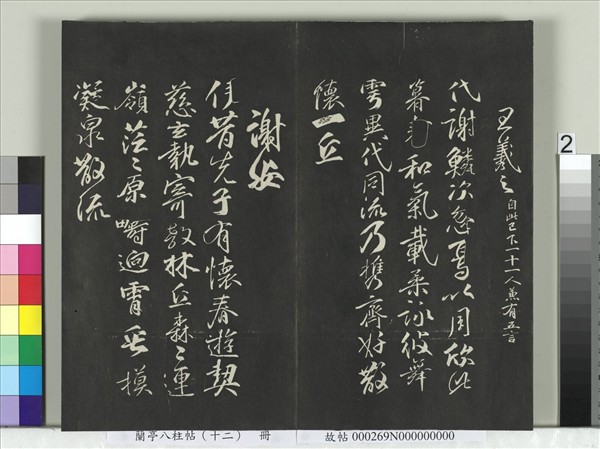 王羲之 自此已下一十一人兼有五言
代謝鱗次忽焉以周欣此
暮春和氣載柔詠彼舞
雩異代同流乃攜齊好散
懷一丘
謝安
伊昔先子有懷春遊契
茲言執寄敖林丘森〻連
嶺茫〻原疇逈霄垂
凝泉散流
2
蘭亭八柱帖(十二) 冊
故帖 000269N000000000